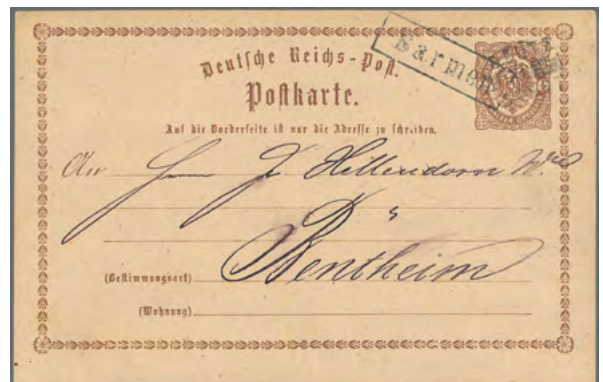 Barmen
Deutsche Reichs-Post.
Postkarte.
Auf die Vorderseite ist nur die Adresse zu schreiben.
An Herrn J. Hellendorn
Bentheim
(Bestimmungsort)
(Wohnung)